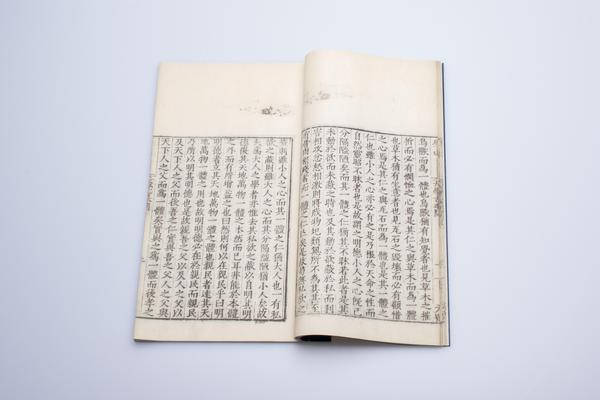 鳥獸而為一體也鳥獸猶有知覺者也見草木之摧
折而必有憫恤之心焉是其仁之與草木而為一體
也草木猶有生意者也見瓦石之毀壞而必有顧惜
之心焉是其仁之與瓦石而為一體也是其一體之
仁也雖小人之心亦必有之是乃根於天命之性而
自然靈昭不昧者也是故謂之明德小人之心既已
分隔隘陋矣而其一體之仁猶其不昧若此者是其
未動於欲而未蔽之時也及其動於欲蔽於私而利
害相攻忿怒相激則將戕物圮類無所不為其甚至
有骨肉相殘者而一體之仁亡矣是故苟無私欲之
蔽則雖小人之心而其一體之仁猶大人也一有私
欲之蔽則雖大人之心而其分隔隘陋猶小人矣故
夫為大人之學者亦惟去其私欲之蔽以自明其明
德復其天地萬物一體之本然而已耳非能於本體
之外而有所增益之也曰然則何以在親民乎曰明
明德者立其天地萬物一體之體也親民者達其天
地萬物一體之用也故明明德必在於親民而親民
乃所以明其明德也是故親吾之父以及人之父以
及天下人之父而後吾之仁實與吾之父人之父與
天下人之父而為一體矣實與之為一體而後孝之